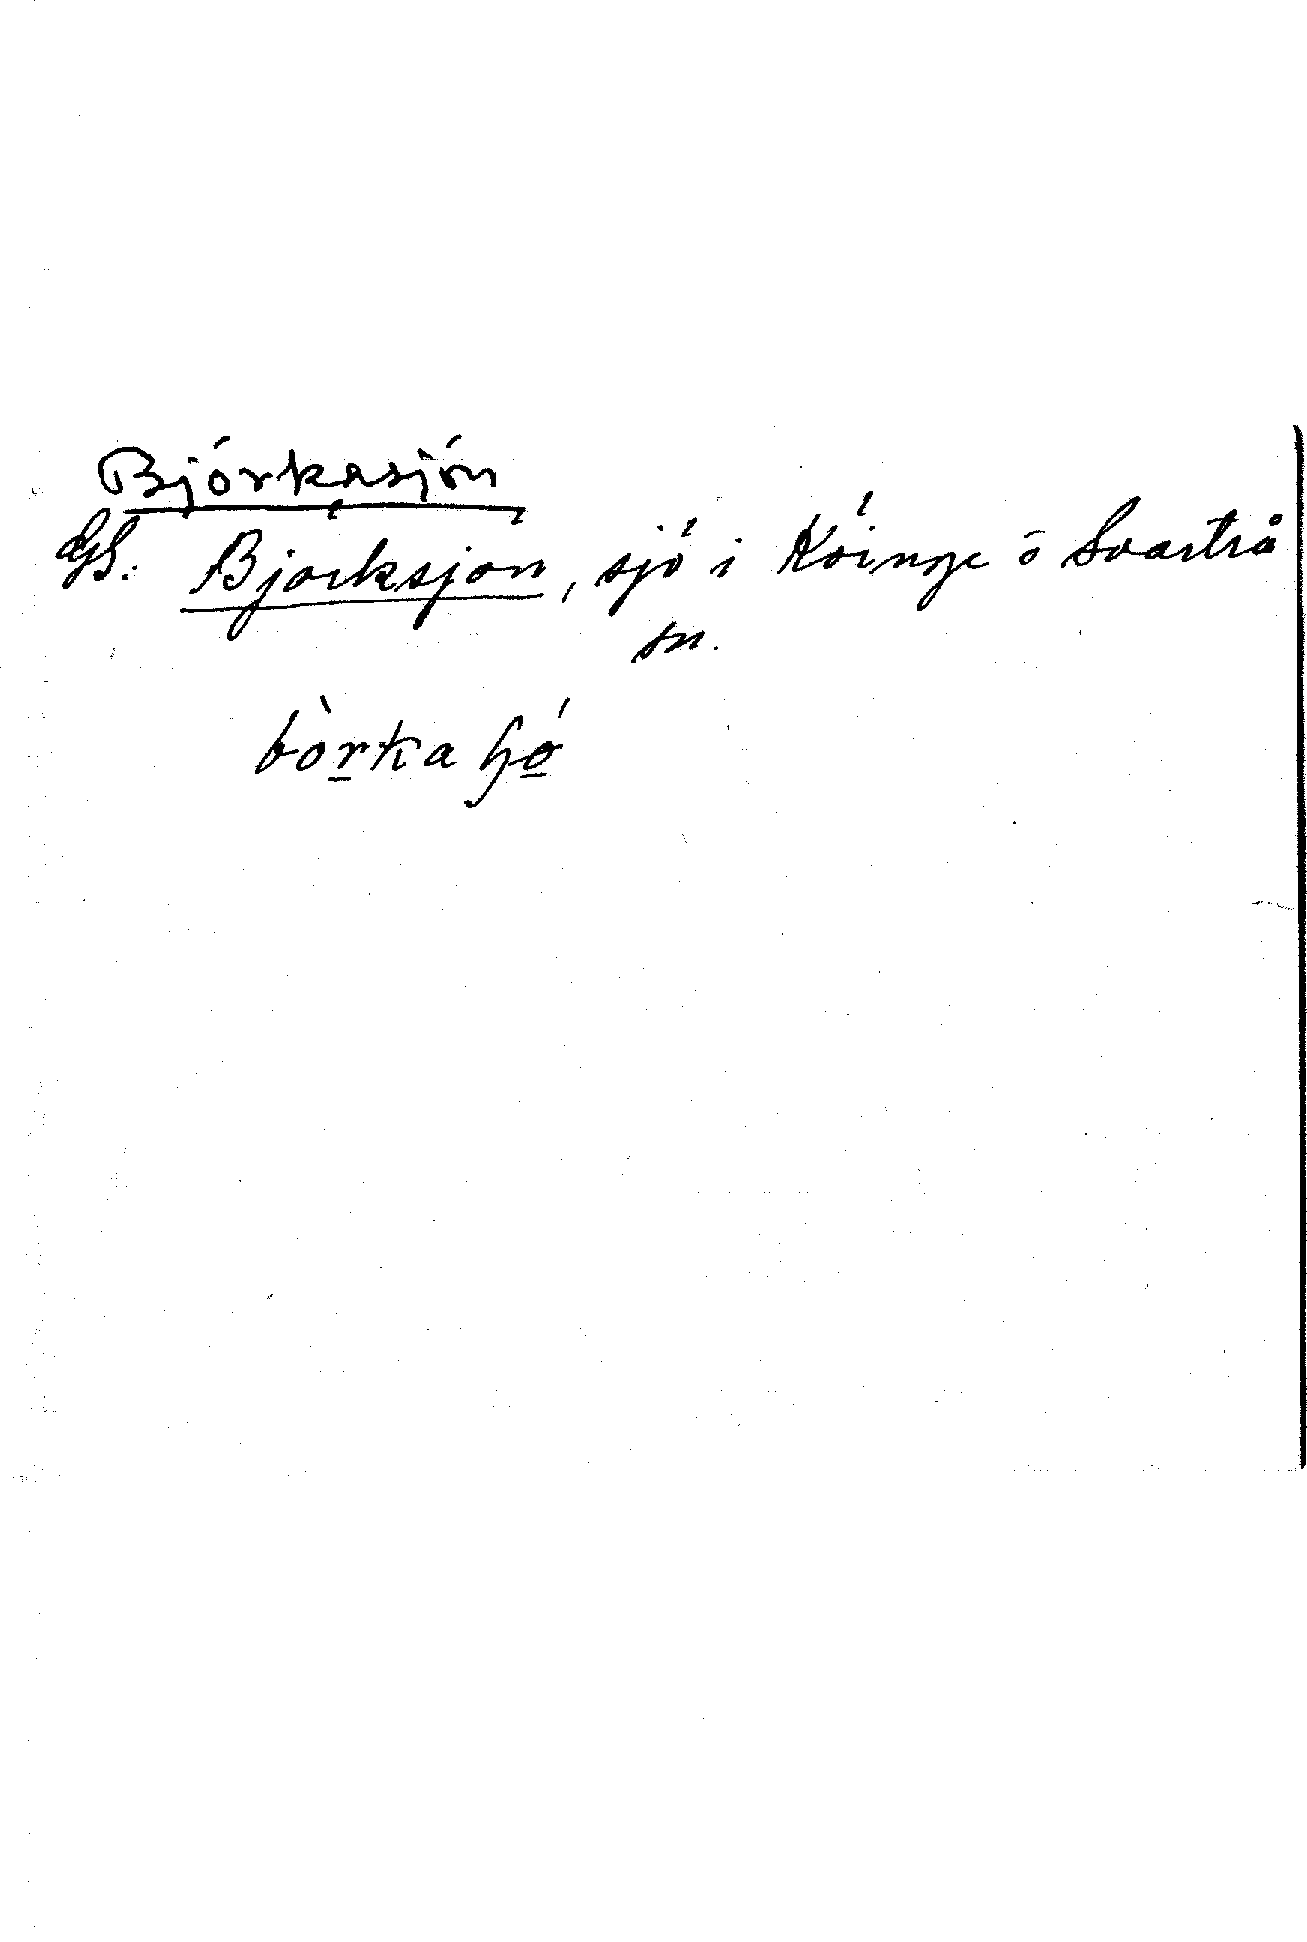 Björkasjön
GS: Bjorksjon, sjö i Köinge o Svartrå
sn.
bòrka ɧó